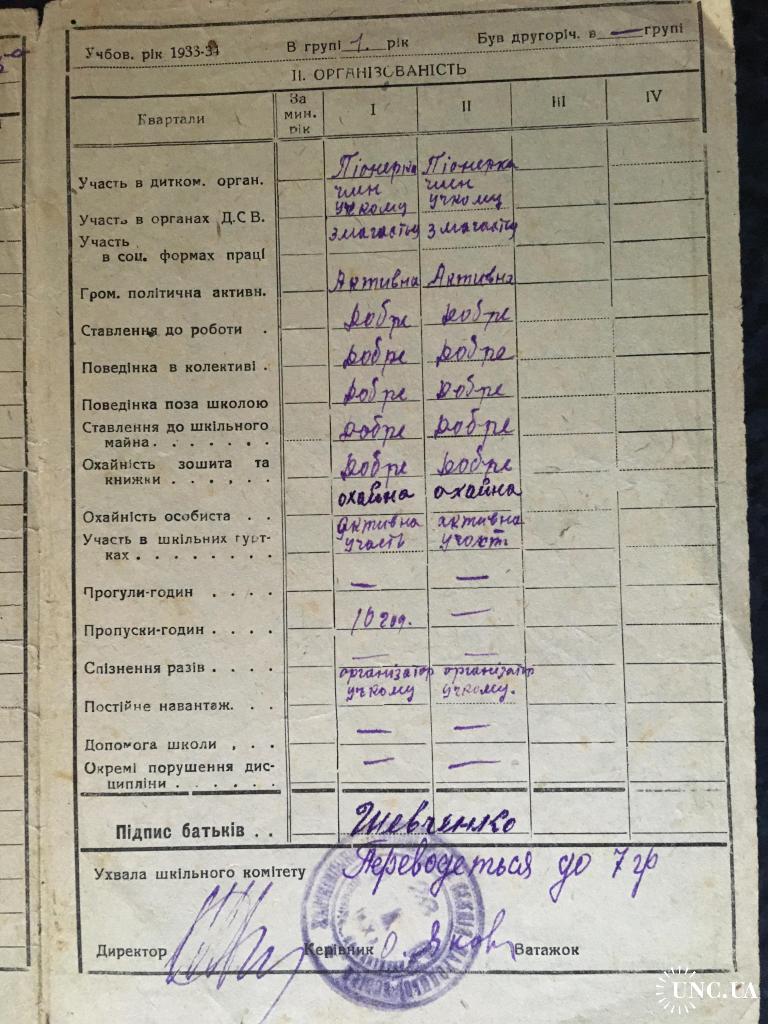 Учбов. рік 1933-34 В групі 1. рік Був другоріч. в — групі
II. ОРГАНІЗОВАНІСТЬ
Квартали За мин. рік I II III IV
Участь в дитком. орган. Піонерка Піонерка
член учкому член учкому
Участь в органах Д.С.В.
Участь в соц. формах праці змагається змагається
Гром. політична активн. Активна Активна
Ставлення до роботи . Добре Добре
Поведінка в колективі . Добре Добре
Поведінка поза школою Добре Добре
Ставлення до шкільного майна . . . . . . Добре Добре
Охайність зошита та книжки . . . . . Добре Добре
Охайність особиста . . охайна охайна
Участь в шкільних гурт-ках . . . . . . . активна участь активна участ
Прогули-годин . . . . — —
Пропуски-годин . . . . 10 год. —
Спізнення разів . . . . — —
Постійне навантаж. . . організатор учкому організатор учкому.
Допомога школи . . . — —
Окремі порушення дис-ципліни . . . . . . — —
Підпис батьків . . Шевченко
Ухвала шкільного комітету Переводеться до 7 гр
Директор Керівник Ватажок
UNC.UA